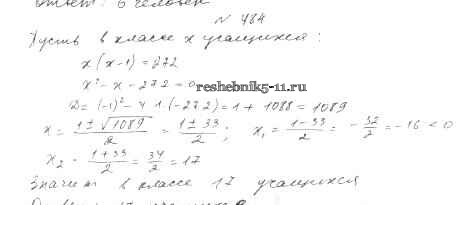 Ответ: 6 человек
№ 484
Пусть в классе x учащихся:
x(x-1)=272
x² - x - 272 = 0
reshebnik5-11.ru
D = (-1)² - 4·1·(-272) = 1 + 1088 = 1089
x = (1 ± √1089)/2 = (1 ± 33)/2; x₁ = (1-33)/2 = -32/2 = -16 < 0
x₂ = (1+33)/2 = 34/2 = 17
Значит в классе 17 учащихся